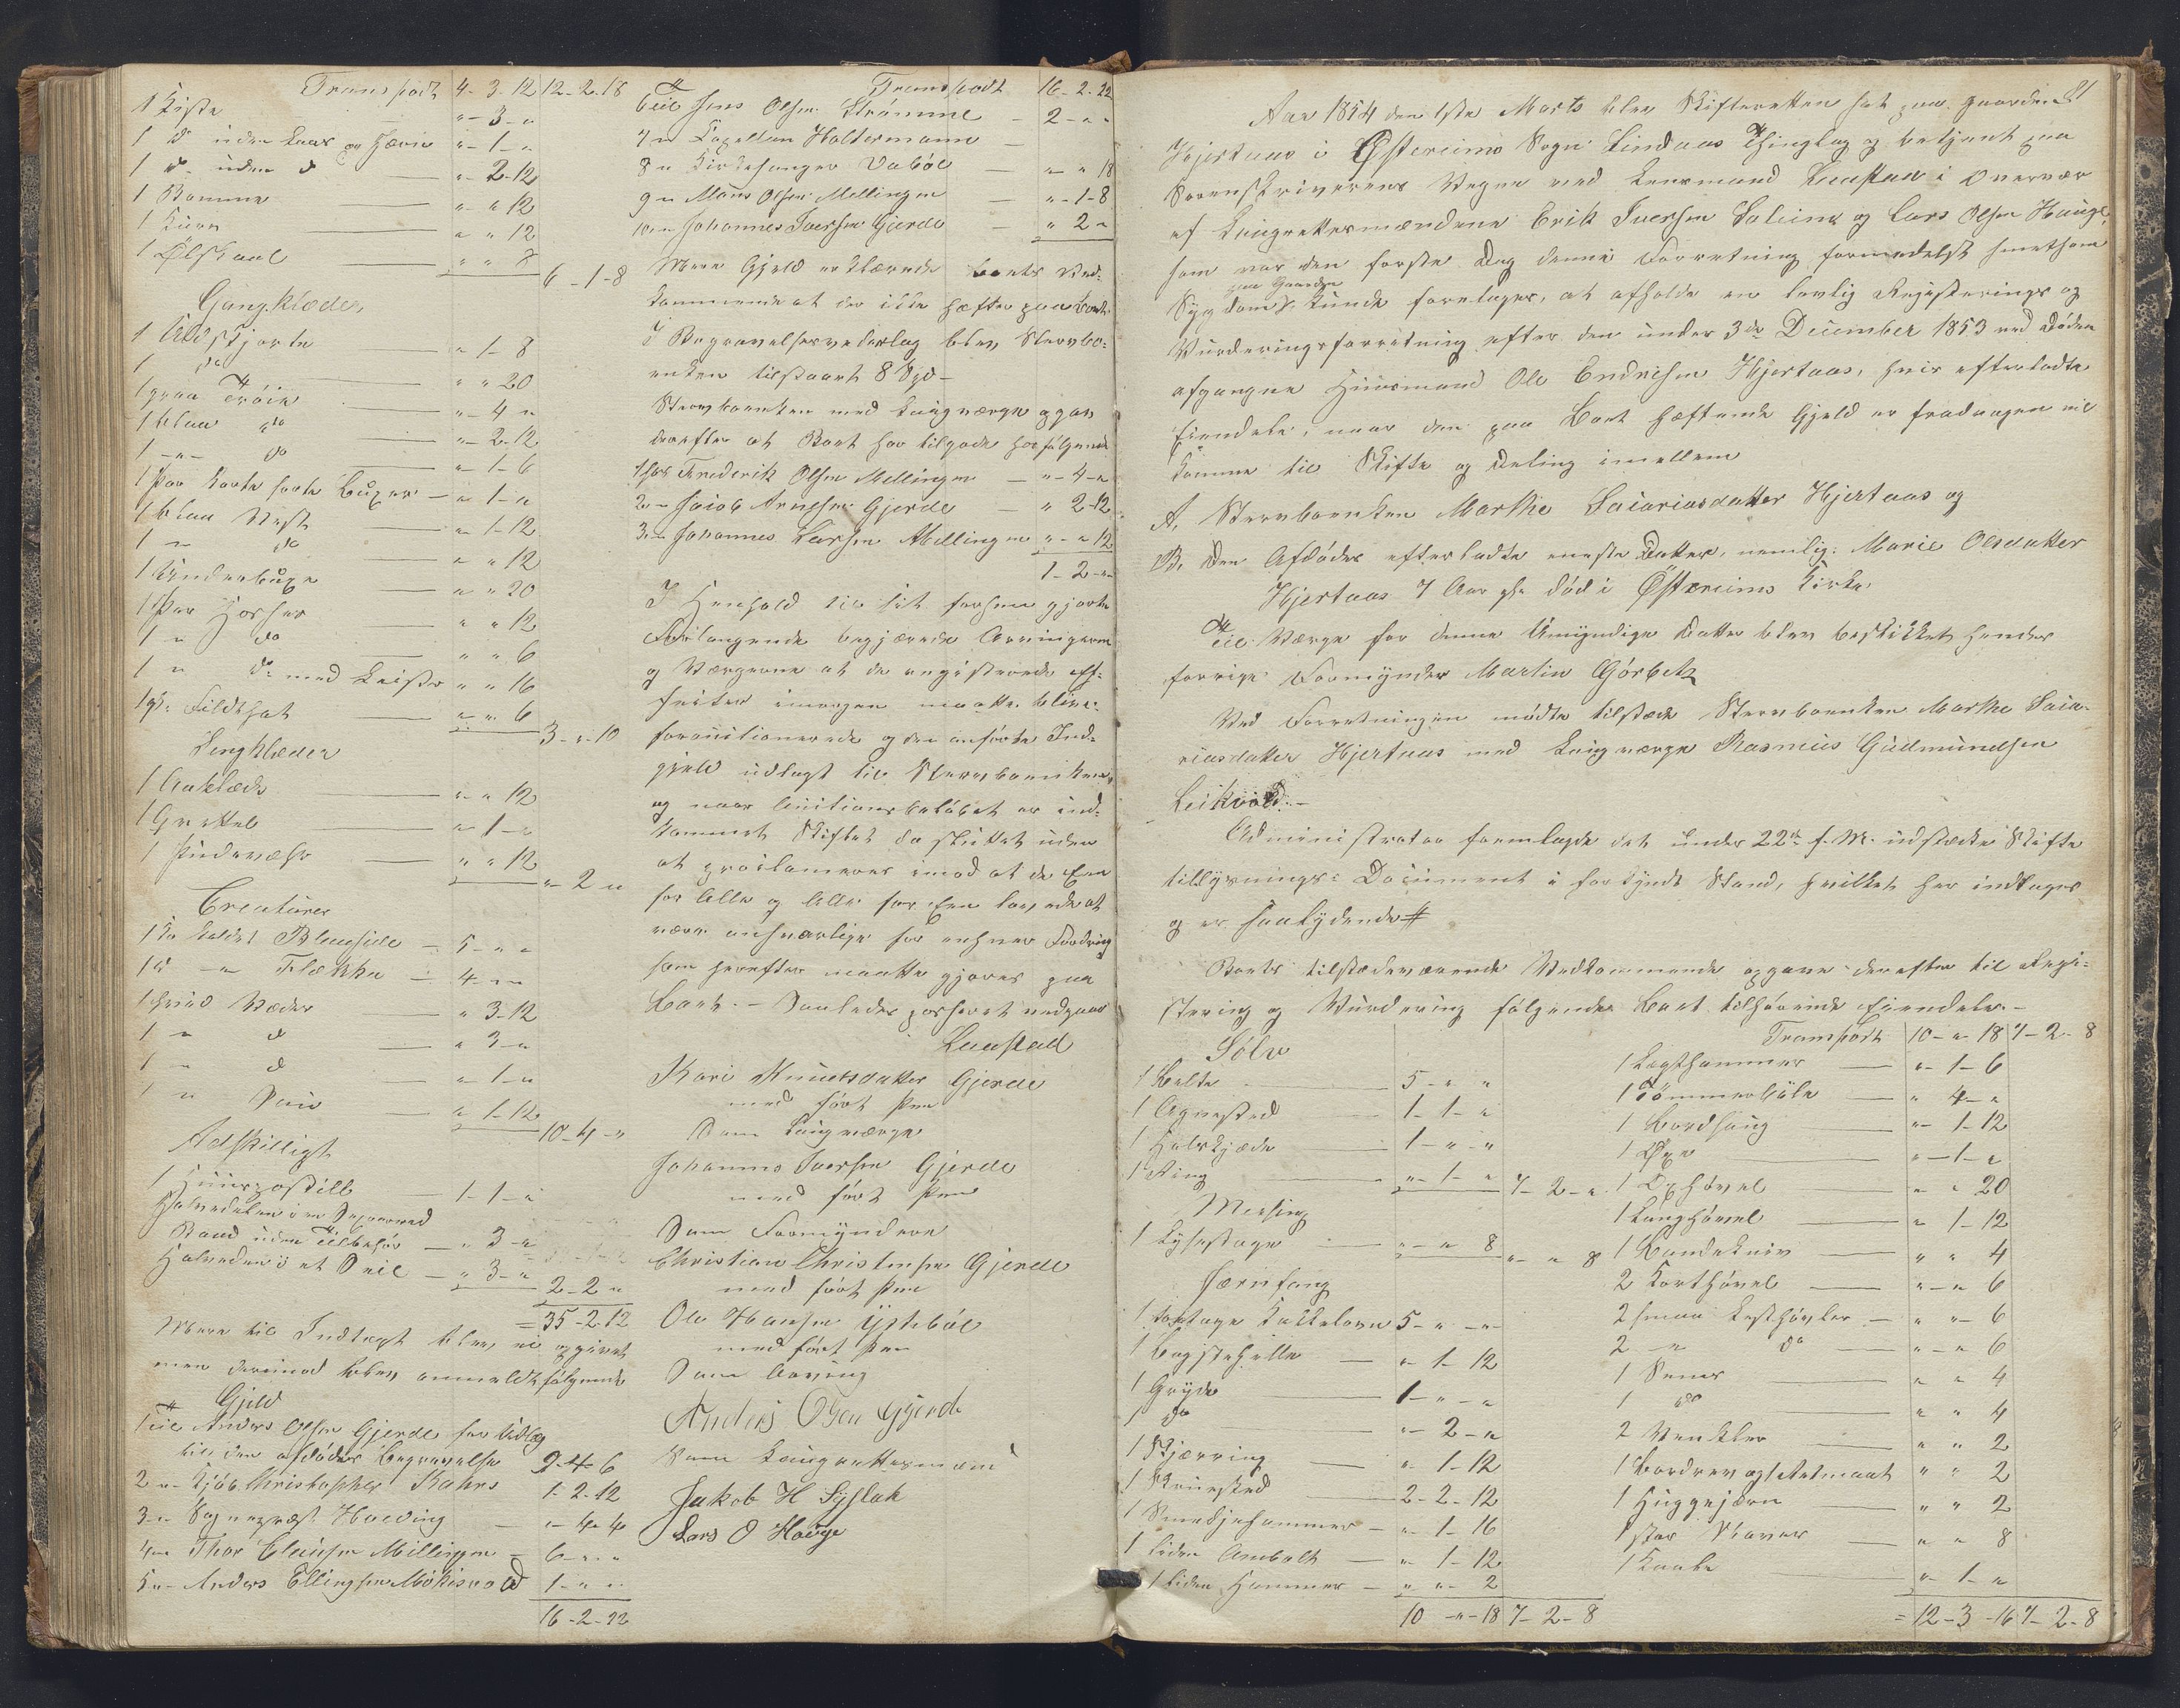 Transport 4-3-12 12-2-18
1 Kiste " - 3 - "
1 do uden Laas og Hevn " - 1 - "
1 do uden do " - 2 - 12
1 Bomme " " 12
1 Kurv " " 12
1 Ølskaal " " 8 6-1-8
Gangklæder,
1 Uldskjorte " 1 - 8
1 do " " 20
1 graa Trøie " - 4 "
1 blaa do " - 2 - 12
1 - " - do " - 1 - 6
1 Par korte sorte Buxer " - 1 - "
1 blaa Vest " - 1 - 12
1 " do " " 12
1 Underbuxe " " 20
1 Par Hoser " " 12
1 " do " " 6
1 " do med Leister " " 16
1 gl. Filthat " " 6 3-"-10
Sengklæder
1 Aaklæde " " 12
1 Grettel " - 1 - "
1 Pudevahr " " 12 " - 2 "
Creaturer
1 Ko kaldet Blaaside 5 - " "
1 do - " Flækka 4 - " "
1 hvid Væder " 3 - 12
1 " do " 3 - "
1 " do " - 1 - "
1 " Souv " 1 - 12 10-4-"
Adskilligt
1 Huuspostill 1 - 1 - "
Halvedelen i en Sexaarred
Baad uden Tilbehør " 3 - "
Halvedeel i et Seil " 3 - " 2-2 "
= 35-2-12
Mere til Indtægt blev ei opgivet
men derimod blev anmeldt følgende
Gjeld
1 til Anders Olsen Gjerde for Udlæg
til den afdødes Begravelse 2-4-6
2 " Kjøb. Christopher Kahrs 1-2-12
3 " Sognepræst Hoeding " - 4 - 4
4 " Thor Clausen Mellingen 6 - " "
5 " Anders Ellingsen Mükisvold 1 - " "
16-2-22
Transport 16-2-22
6 til Jens Olsen Strømme 2 - " "
7 " Capellan Haltermann
8 " Kirkesanger Vabøe " " 18
9 " Mons Olsen Mellingen " - 1 - 8
10 " Johannes Iversen Gjerde " 2 "
Mere Gjeld erklærede Boets Ved-
kommende at der ikke hæfte paa Boet
I Begravelsesvederlag blev Stervbo-
enken tilstaaet 8 Spd -
Stervboenken med Laugværge opgav
derefter at Boet har tilgode hos følgende
1 hos Frederik Olsen Mellingen " - 4 - "
2 - Jacob Arnesen Gjerde " 2 - 12
3 - Johannes Larsen Mellingen " - " 12
1 - 2 - "
I Henhold til sit forhen gjorte
Forlangende begjærede Arvingerne
og Værgerne at de registrerede Ef-
fecter imorgen maatte blive
forauctionerede og den anførte Ind-
gjeld udlagt til Stervboenken,
og naar Auctionsbeløbet er ind-
kommet Skiftet da sluttet uden
at proclameres imod at de Een
for Alle og Alle for Een lovede at
være ansvarlige for enhver Fordring
som herefter maatte gjøres paa
Boet. - Saaledes passeret vedgaaes
Laastad
Kari Knudsdatter Gjerde
med ført Pen
Som Laugværge
Johannes Iversen Gjerde
med ført Pen
Som Formyndere
Christian Christensen Gjerde
med ført Pen
Ole Hansen Ystebøe
med ført Pen
Som Arving
Anders Olsen Gjerde
Som Laugrettesmænd
Jakob H Syslak
Lars O Hauge
81
Aar 1854 den 1ste Marts blev Skifteretten sat paa Gaarden
Hjertaas i Østereims Sogn Lindaas Thinglag og betjent paa
Sorenskriverens Vegne ved Lensmand Laastad i Overvær
af Laugrettesmændene Erik Iversen Soleim og Lars Olsen Hauge,
som var den første Dag denne Forretning formedelst smitsom
Sygdom paa Gaarden kunde foretages, at afholde en lovlig Registerings og
Vurderingsforretning efter den under 3de December 1853 ved Døden
afgangne Huusmand Ole Endresen Hjertaas, hvis efterladte
Eiendele, naar den paa Boet hæftende Gjeld er fradragen vil
komme til Skifte og Deling imellem
A, Stervboenken Marthe Saicariasdatter Hjertaas og
B, den Afdødes efterladte eneste Datter, nemlig: Marie Olsdatter
Hjertaas 7 Aar gl. død i Østereims Kirke.
Til Værge for denne Umyndige Datter blev beskikket hendes
forrige Formynder Martin Gørbitz
Ved Forretningen mødte tilstede Stervboenken Marthe Saica-
riasdatter Hjertaas med Laugværge Rasmus Gudmundsen
Leikvold. -
Administrator fremlagde det under 22de f. M. udstædte Skifte
tillysnings-Document i forkyndt Stand, hvilket her indtages
og er saalydende #
Boets tilstedeværende Vedkommende opgave derefter til Regi-
strering og Vurdering følgende Boet tilhørende Eiendele. -
Sølv
1 Belte 5 - " "
1 Agnested 1 - 1 - "
1 Halskjæde 1 - " - "
1 Ring " - 1 - " 7-2-"
Messing
1 Lysestage " - " 8 " - " 8
Jernfang
1 toetages Kakkelovn 5 - " - "
1 Bagstehelle " - 1 - 12
1 Gryde 1 - " - "
1 do " - 2 - "
1 Skjærring " - 1 - 12
1 Skruested 2 - 2 - 12
1 Smedjehammer " - 1 - 16
1 liden Ambolt " - 1 - 12
1 liden Hammer " - " - 2
10 - " - 18 7-2-8
Transport 10-"-18 7-2-8
1 Lægthammer " - 1 - 6
1 Tømmerbile " 4 - "
1 Bordsaug " - 1 - 12
1 Øxe " - 1 - "
1 Oxhøvel " " 20
1 Langhøvel " 1 - 12
1 Bandekniv " " 4
2 Korthøvel " - " 6
2 smaa Listhøvler " " - 6
2 - " do " - " 6
1 Naver " " 4
1 do " " 4
2 Venkler " " 2
1 Bordrev og 1 Retmaat " " 2
1 Huggejern " " 2
1 stor Naver " " 8
1 Knabe " - 1 - "
= 12-3-16 7-2-8